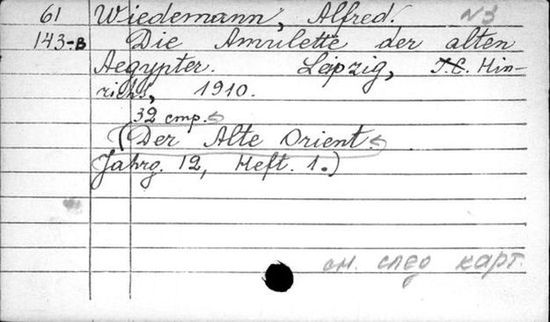 61 Wiedemann, Alfred. N3
143-B Die Amulette der alten
Aegypter. Leipzig, J.C. Hin-
richs, 1910.
32 стр.
(Der Alte Orient.
Jahrg. 12, Heft. 1.)
см. след карт.